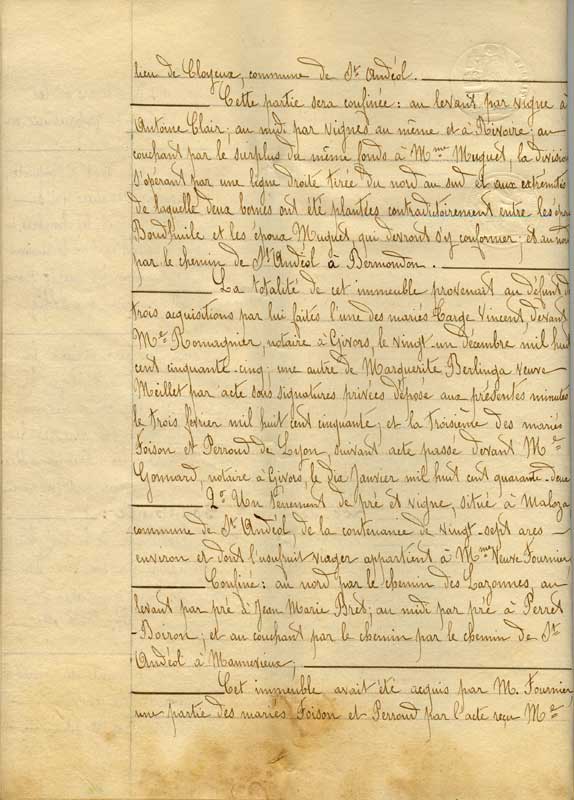 lieu de Cloyeux, commune de St Andéol.
Cette partie sera confinée : au levant par vigne à
Antoine Clair ; au midi par vignes au même et à Rivoire ; au
couchant par le surplus du même fonds à Mme Muguet, la division
s'opérant par une ligne droite tirée du nord au sud et aux extremités
de laquelle deux bornes ont été plantées contradictoirement entre les
et les époux Muguet, qui devront s'y conformer ; et au nord
par le chemin de St Andéol à Bermondon.
La totalité de cet immeuble provenait au défunt de
trois acquisitions par lui faites l'une des mariés Targe Vincent, devant
Me Romagnier, notaire à Givors, le vingt-un Décembre mil huit
cent cinquante-cinq ; une autre de Marguerite Berlinga veuve
Meillet par acte sous signatures privées déposé aux présentes minutes
le trois février mil huit cent cinquante, et la troisième des mariés
Foison et Perroud de Lyon, suivant acte passé devant Me
Gonnard, notaire à Givors, le dix Janvier mil huit cent quarante-deux
2° Un tènement de pré et vigne, situé à Maloza
commune de St Andéol, de la contenance de vingt-sept ares
environ et dont l'usufruit viager appartient à Mme Veuve Fournier,
Confiné : au nord par le chemin des Lazonnes, au
levant par pré à Jean Marie Bret ; au midi par pré à Perret
-Boiron ; et au couchant par le chemin par le chemin de St
Andéol à Mannevieux ;
Cet immeuble avait été acquis par M. Fournier,
une partie des mariés Foison et Perroud par l'acte reçu Me